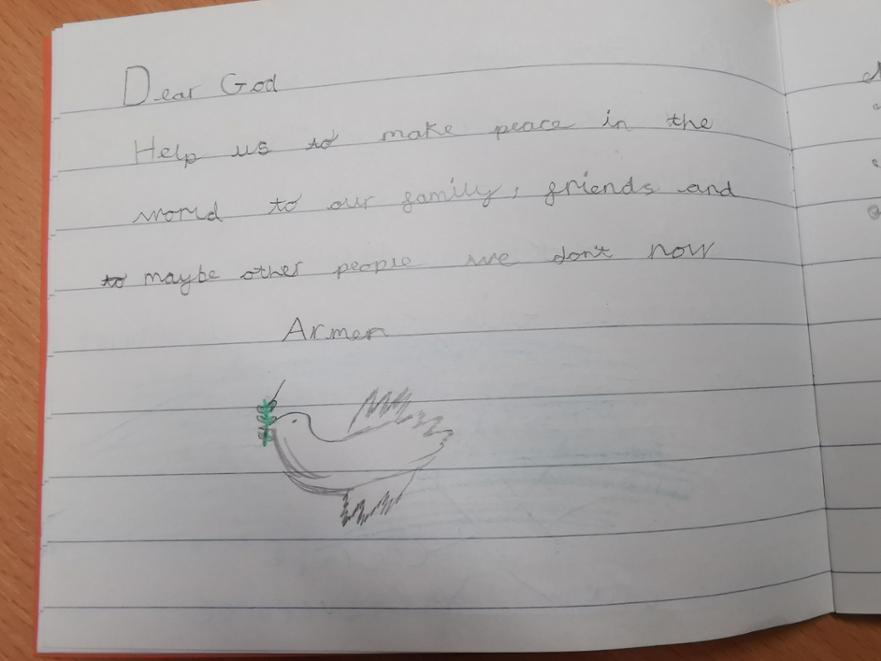 Dear God
Help us to make peace in the
world to our family, friends and
to maybe other people we don't now
Armen